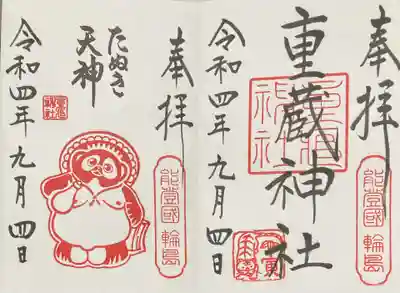 奉拝
能登國 輪島
重蔵神社
令和四年九月四日
奉拝
能登國 輪島
たぬき
天神
令和四年九月四日